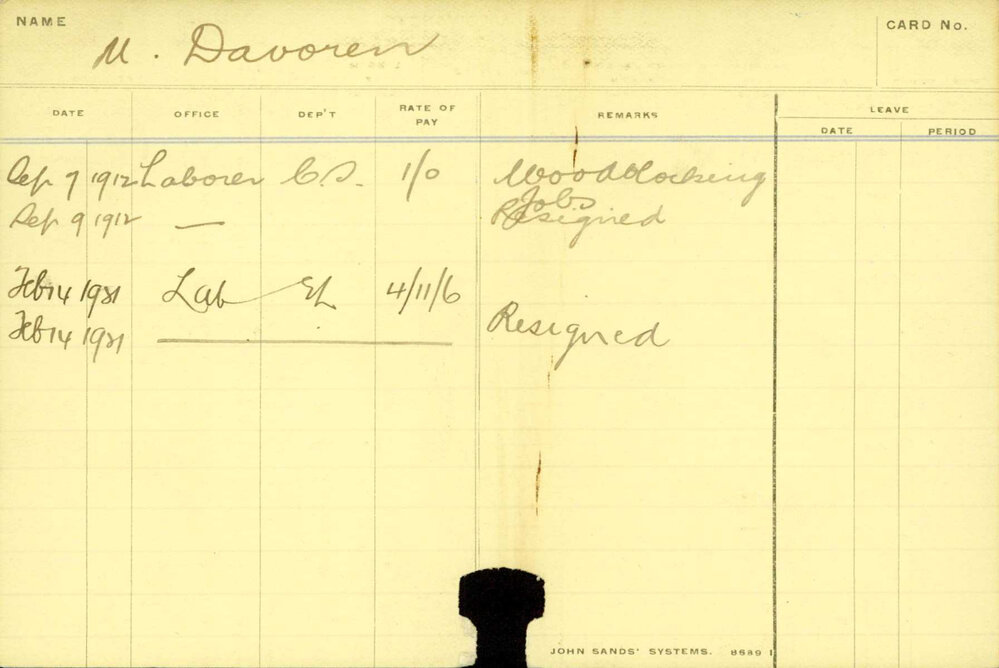 NAME
M. Davoren
CARD No.
DATE OFFICE DEP'T RATE OF PAY REMARKS LEAVE
DATE PERIOD
Sep 7 1912 Laborer C.S. 1/0 Woodblocking Jobs
Sep 9 1912 — Resigned
Feb 14 1921 Lab EL 4/11/6
Feb 14 1921 Resigned
JOHN SANDS' SYSTEMS. 8689